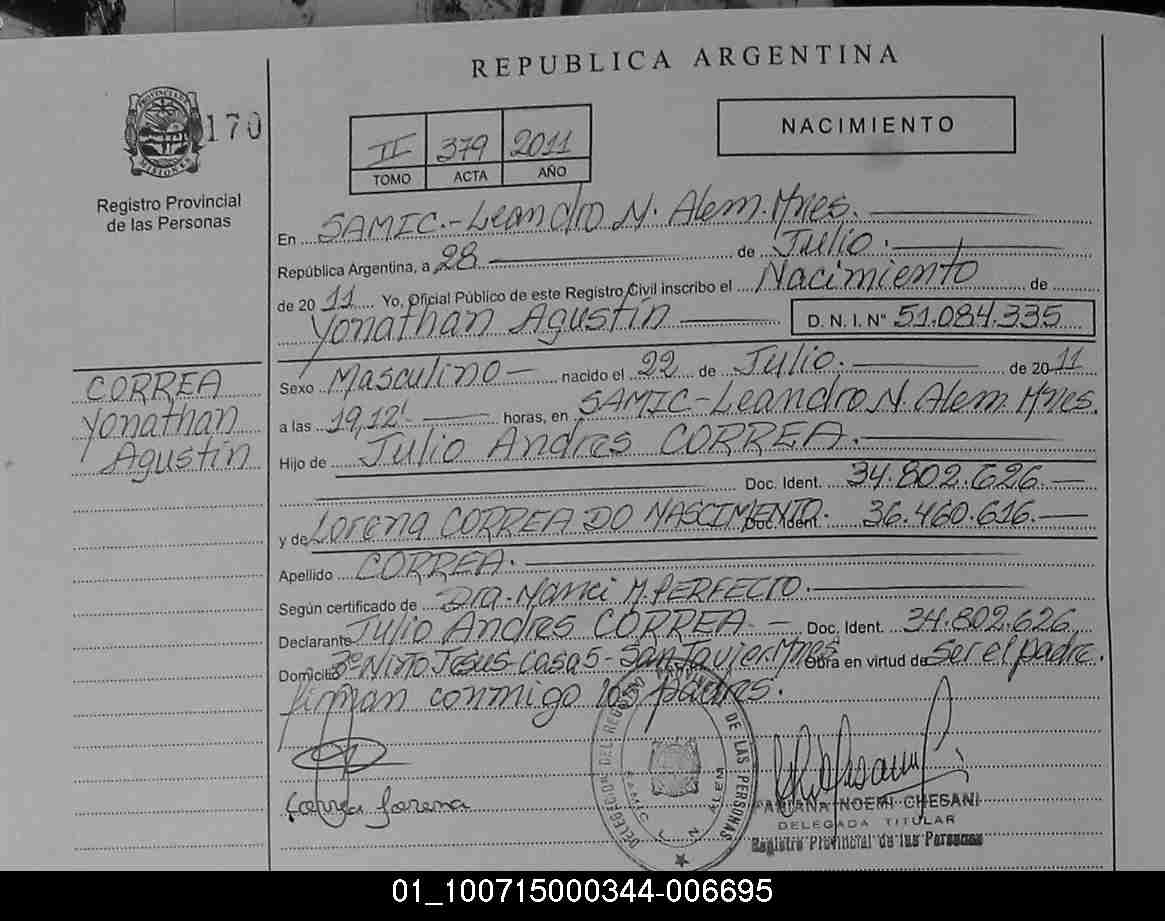 REPUBLICA ARGENTINA
PROVINCIA DE MISIONES
170
Registro Provincial
de las Personas
II 379 2011
TOMO ACTA AÑO
NACIMIENTO
En SAMIC.-Leandro N. Alem. Mnes.
República Argentina, a 28 de Julio.
de 2011 Yo, Oficial Público de este Registro Civil inscribo el Nacimiento de
Yonathan Agustín D. N. I. N° 51.084.335
CORREA
Yonathan
Agustín
Sexo Masculino nacido el 22 de Julio. de 2011
a las 19,12' horas, en SAMIC-Leandro N Alem. Mnes.
Hijo de Julio Andrés CORREA.
Doc. Ident. 34.802.626.
y de Lorena CORREA DO NASCIMENTO. Doc. Ident. 36.460.616.
Apellido CORREA.
Según certificado de Dra. Nanci M. PERFECTO.
Declarante Julio Andrés CORREA Doc. Ident. 34.802.626.
Domicilio B° Niño Jesus-Casa 5-San Javier. Mnes Obra en virtud de Ser el padre.
firman conmigo los padres.
Correa Lorena
DELEGACION DEL REGISTRO PROVINCIAL DE LAS PERSONAS
SAMIC L. N. ALEM
NOEMI CHESANI
DELEGADA TITULAR
Registro Provincial de las Personas
01_100715000344-006695